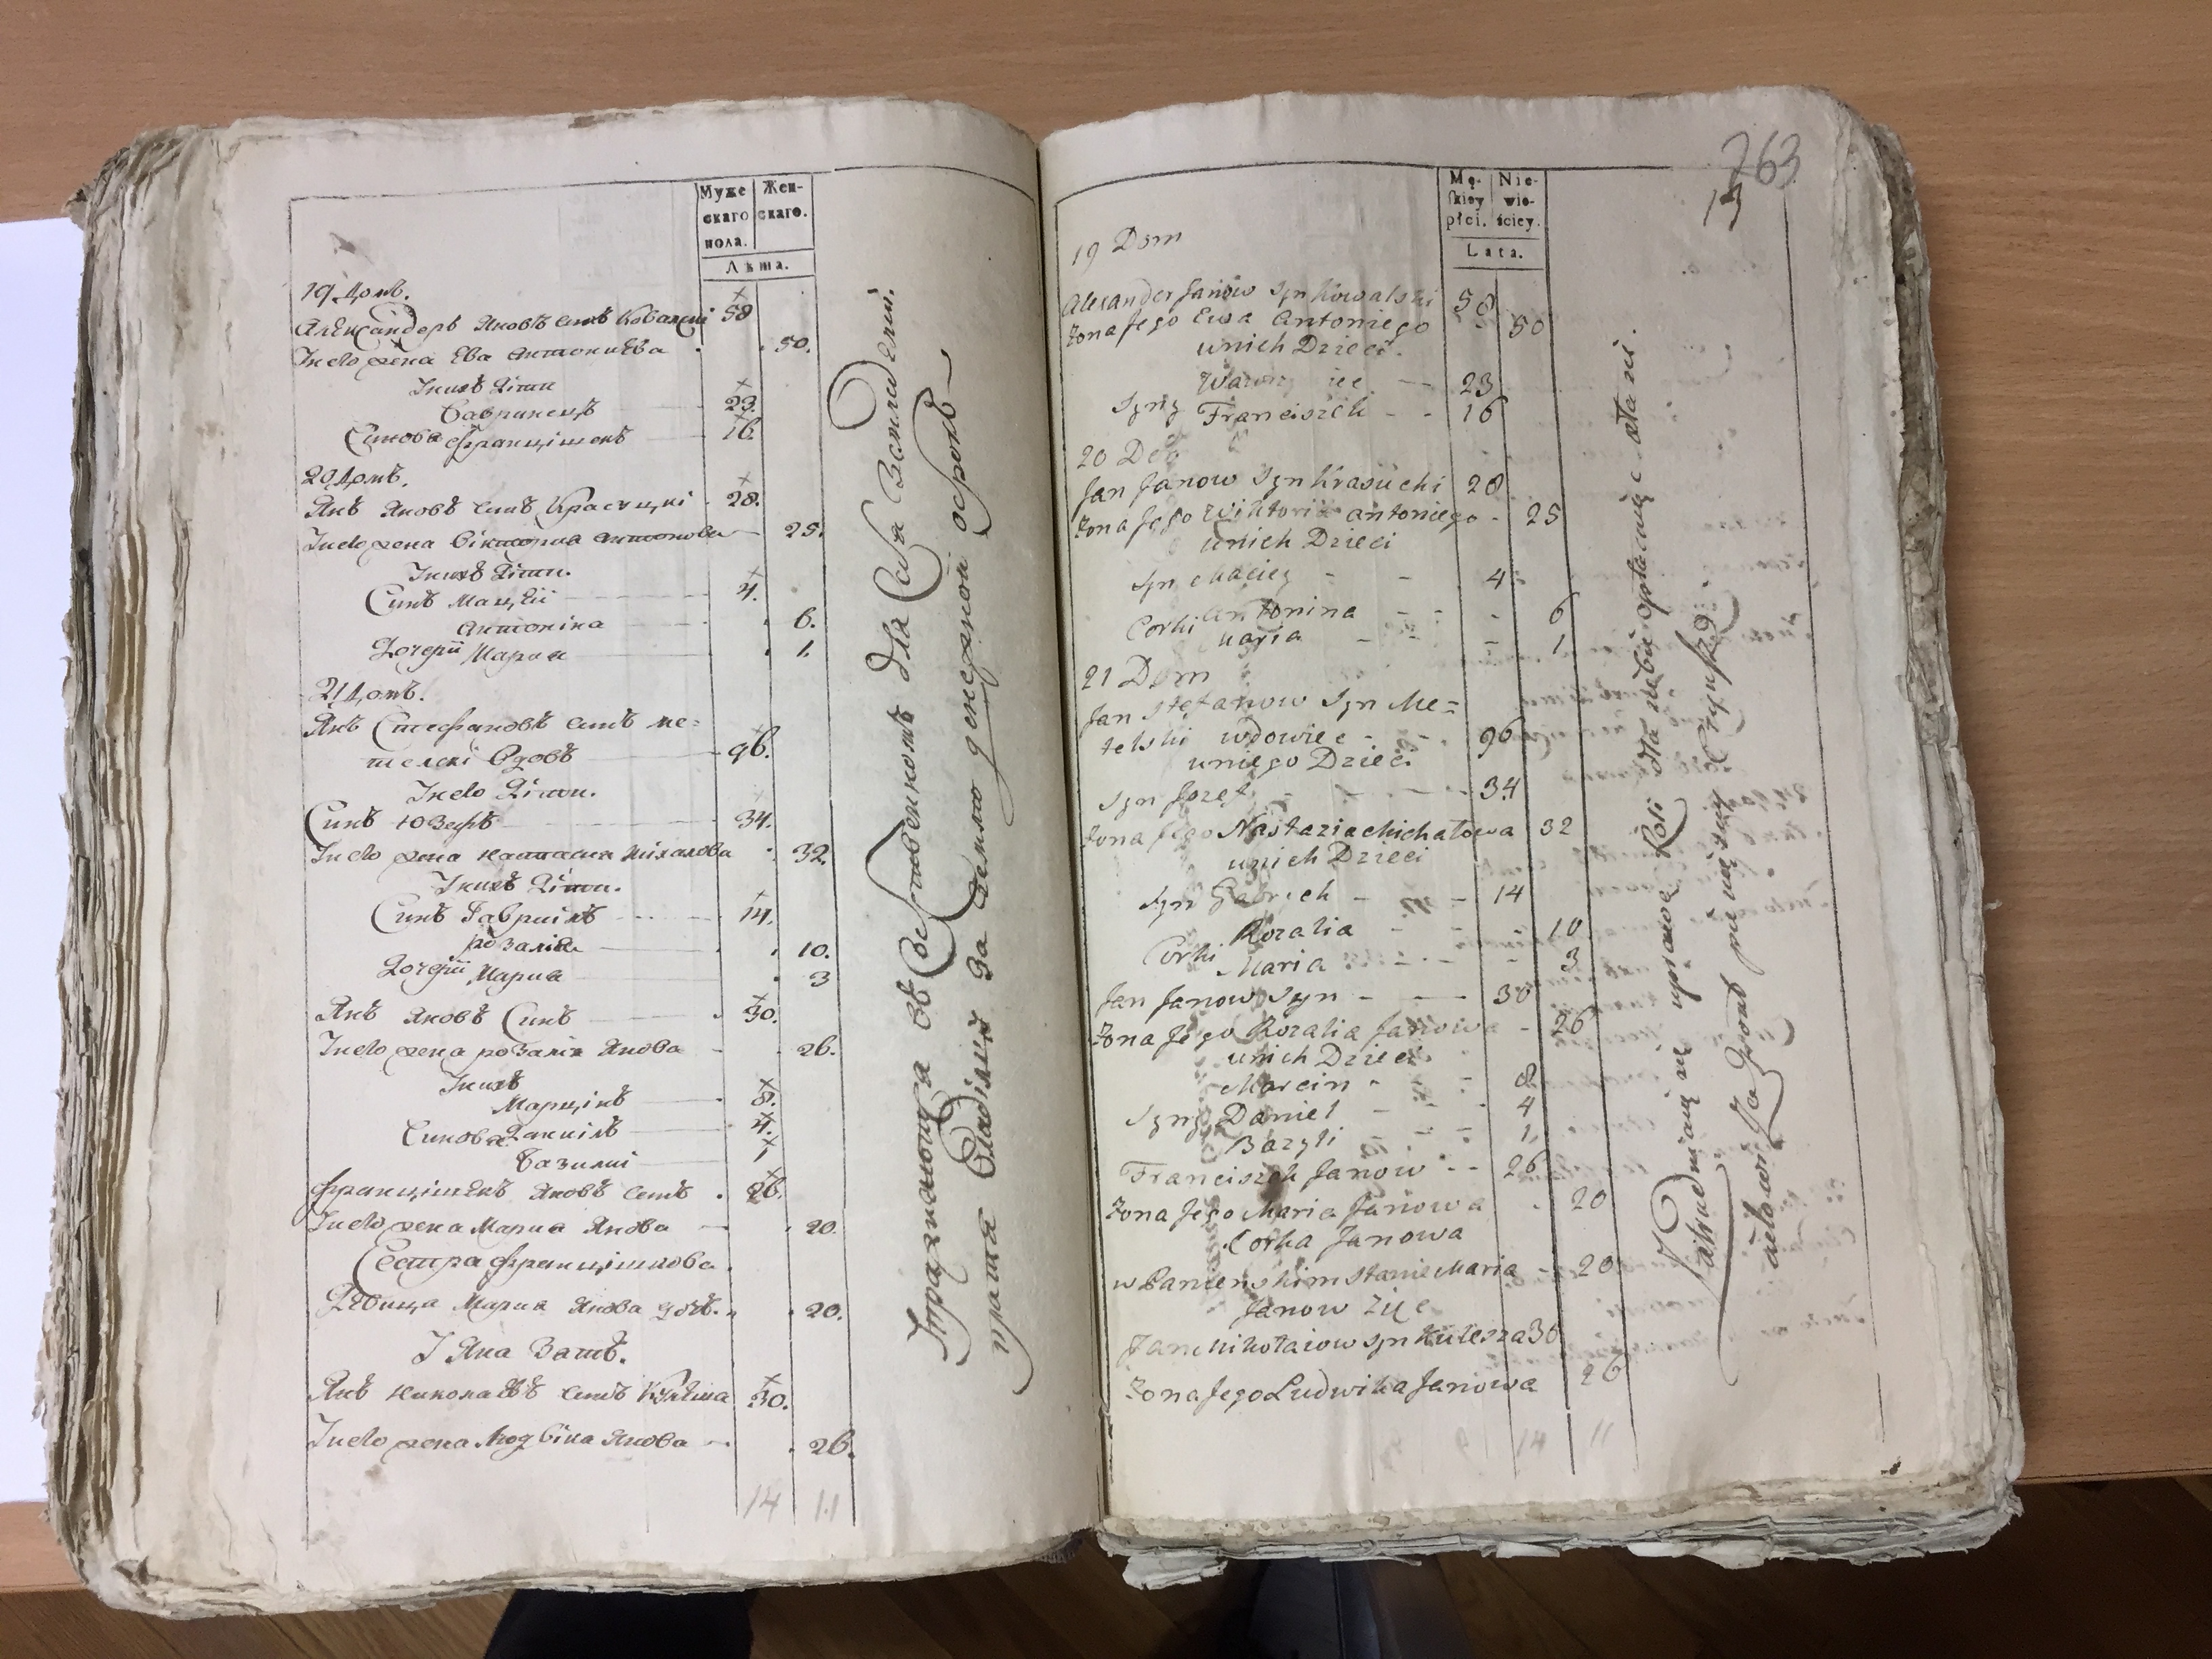 Муже
скаго
пола.
Жен-
скаго.
Лѣта.
19 Домъ.
Александеръ Яновъ синъ Ковалскі 58
Іисео жена Ева Антониѣва 50.
Інихъ Дѣти
Вавринецъ 23.
Синова Францішекъ 16.
20 Домъ.
Янъ Яновъ синъ Красуцкі 28.
Інсео жена Вікторіа Антонова 25.
Інихъ Дѣти.
Синъ Мацѣй 4.
Антоніна 6.
Дочерій Мариа 1.
21 Домъ.
Янъ Стефановъ синъ Ме=
телскі Вдовъ 96.
Інсео Дѣти.
Синъ Юзефъ 34.
Інсео жена Настасиа Міхалова 32
Інихъ Дѣти.
Синъ Гавриілъ 14.
Розаліа 10.
Дочерій Мариа 3
Янъ Яновъ Синъ 30.
Інсео жена Розаліа Янова 26.
Інихъ
Марцінъ 8.
Синова Данніилъ 4.
Базилиі 1
Францішекъ Яновъ синъ 26.
Інсео жена Мариа Янова 20.
Сестра Францішкова.
Дѣвица Мариа Янова дочь. 20.
І Яна Зать.
Янъ Николаѣвъ синъ Кулѣша 30.
Інсео жена Людвіка Янова 26.
14 11
для Себя
за Землю денежной оброкъ
263
13
Mę-
skiey
płci.
Nie-
wie-
ściey.
Lata.
19 Dom
Alexander Janow Syn Kowalski 58
Zona Jego Ewa Antoniego 50
unich Dzieci.
23
Syny Franciszek 16
20 Do
Jan Janow Syn Krasucki 28
Zona Jego Wiktoria Antoniego 25
unich Dzieci
Syn Maciey 4
Corki Antonina 6
Maria 1
21 Dom
Jan Stefanow Syn Me=
telski wdowiec 96
uniego Dzieci
Syn Jozef 34
Zona Jego Nastazia Michałowa 32
unich Dzieci
Syn Gabryel 14
Rozalia 10
Corki Maria 3
Jan Janow Syn 30
Zona Jego Rozalia Janowa 26
unich Dzieci
Marcin 8
Syny Daniel 4
Bazyli 1
Franciszek Janow 26
Zona Jego Maria Janowa 20
Corka Janowa
w Panienskim Stanie Maria 20
Janow Zięc
Jan Mikołaiow Syn Kulesza 30
Zona Jego Ludwika Janowa 26
14 11
Zatrudniaią się uprawą Roli dla siebie opłacaiąc